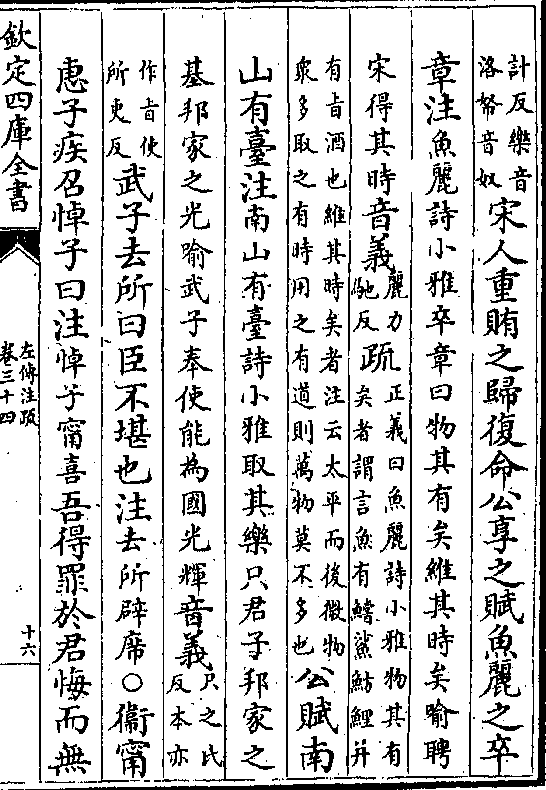 計反樂音
洛帑音奴
宋人重賄之歸復命公享之賦魚麗之卒
章注魚麗詩小雅卒章曰物其有矣維其時矣喻聘
宋得其時音義
麗力
馳反
疏
正義曰魚麗詩小雅物其有
矣者謂言魚有鱨鯊魴鯉并
有㫖酒也維其時矣者注云太平而後微物
衆多取之有時用之有道則萬物莫不多也
公賦南
山有臺注南山有臺詩小雅取其樂只君子邦家之
基邦家之光喻武子奉使能為國光輝音義
只之氏
反本亦
作㫖使
所吏反
武子去所曰臣不堪也注去所辟席○衞甯
惠子疾召悼子曰注悼子甯喜吾得罪於君悔而無
欽定四庫全書
左傳注疏
卷三十四
十六